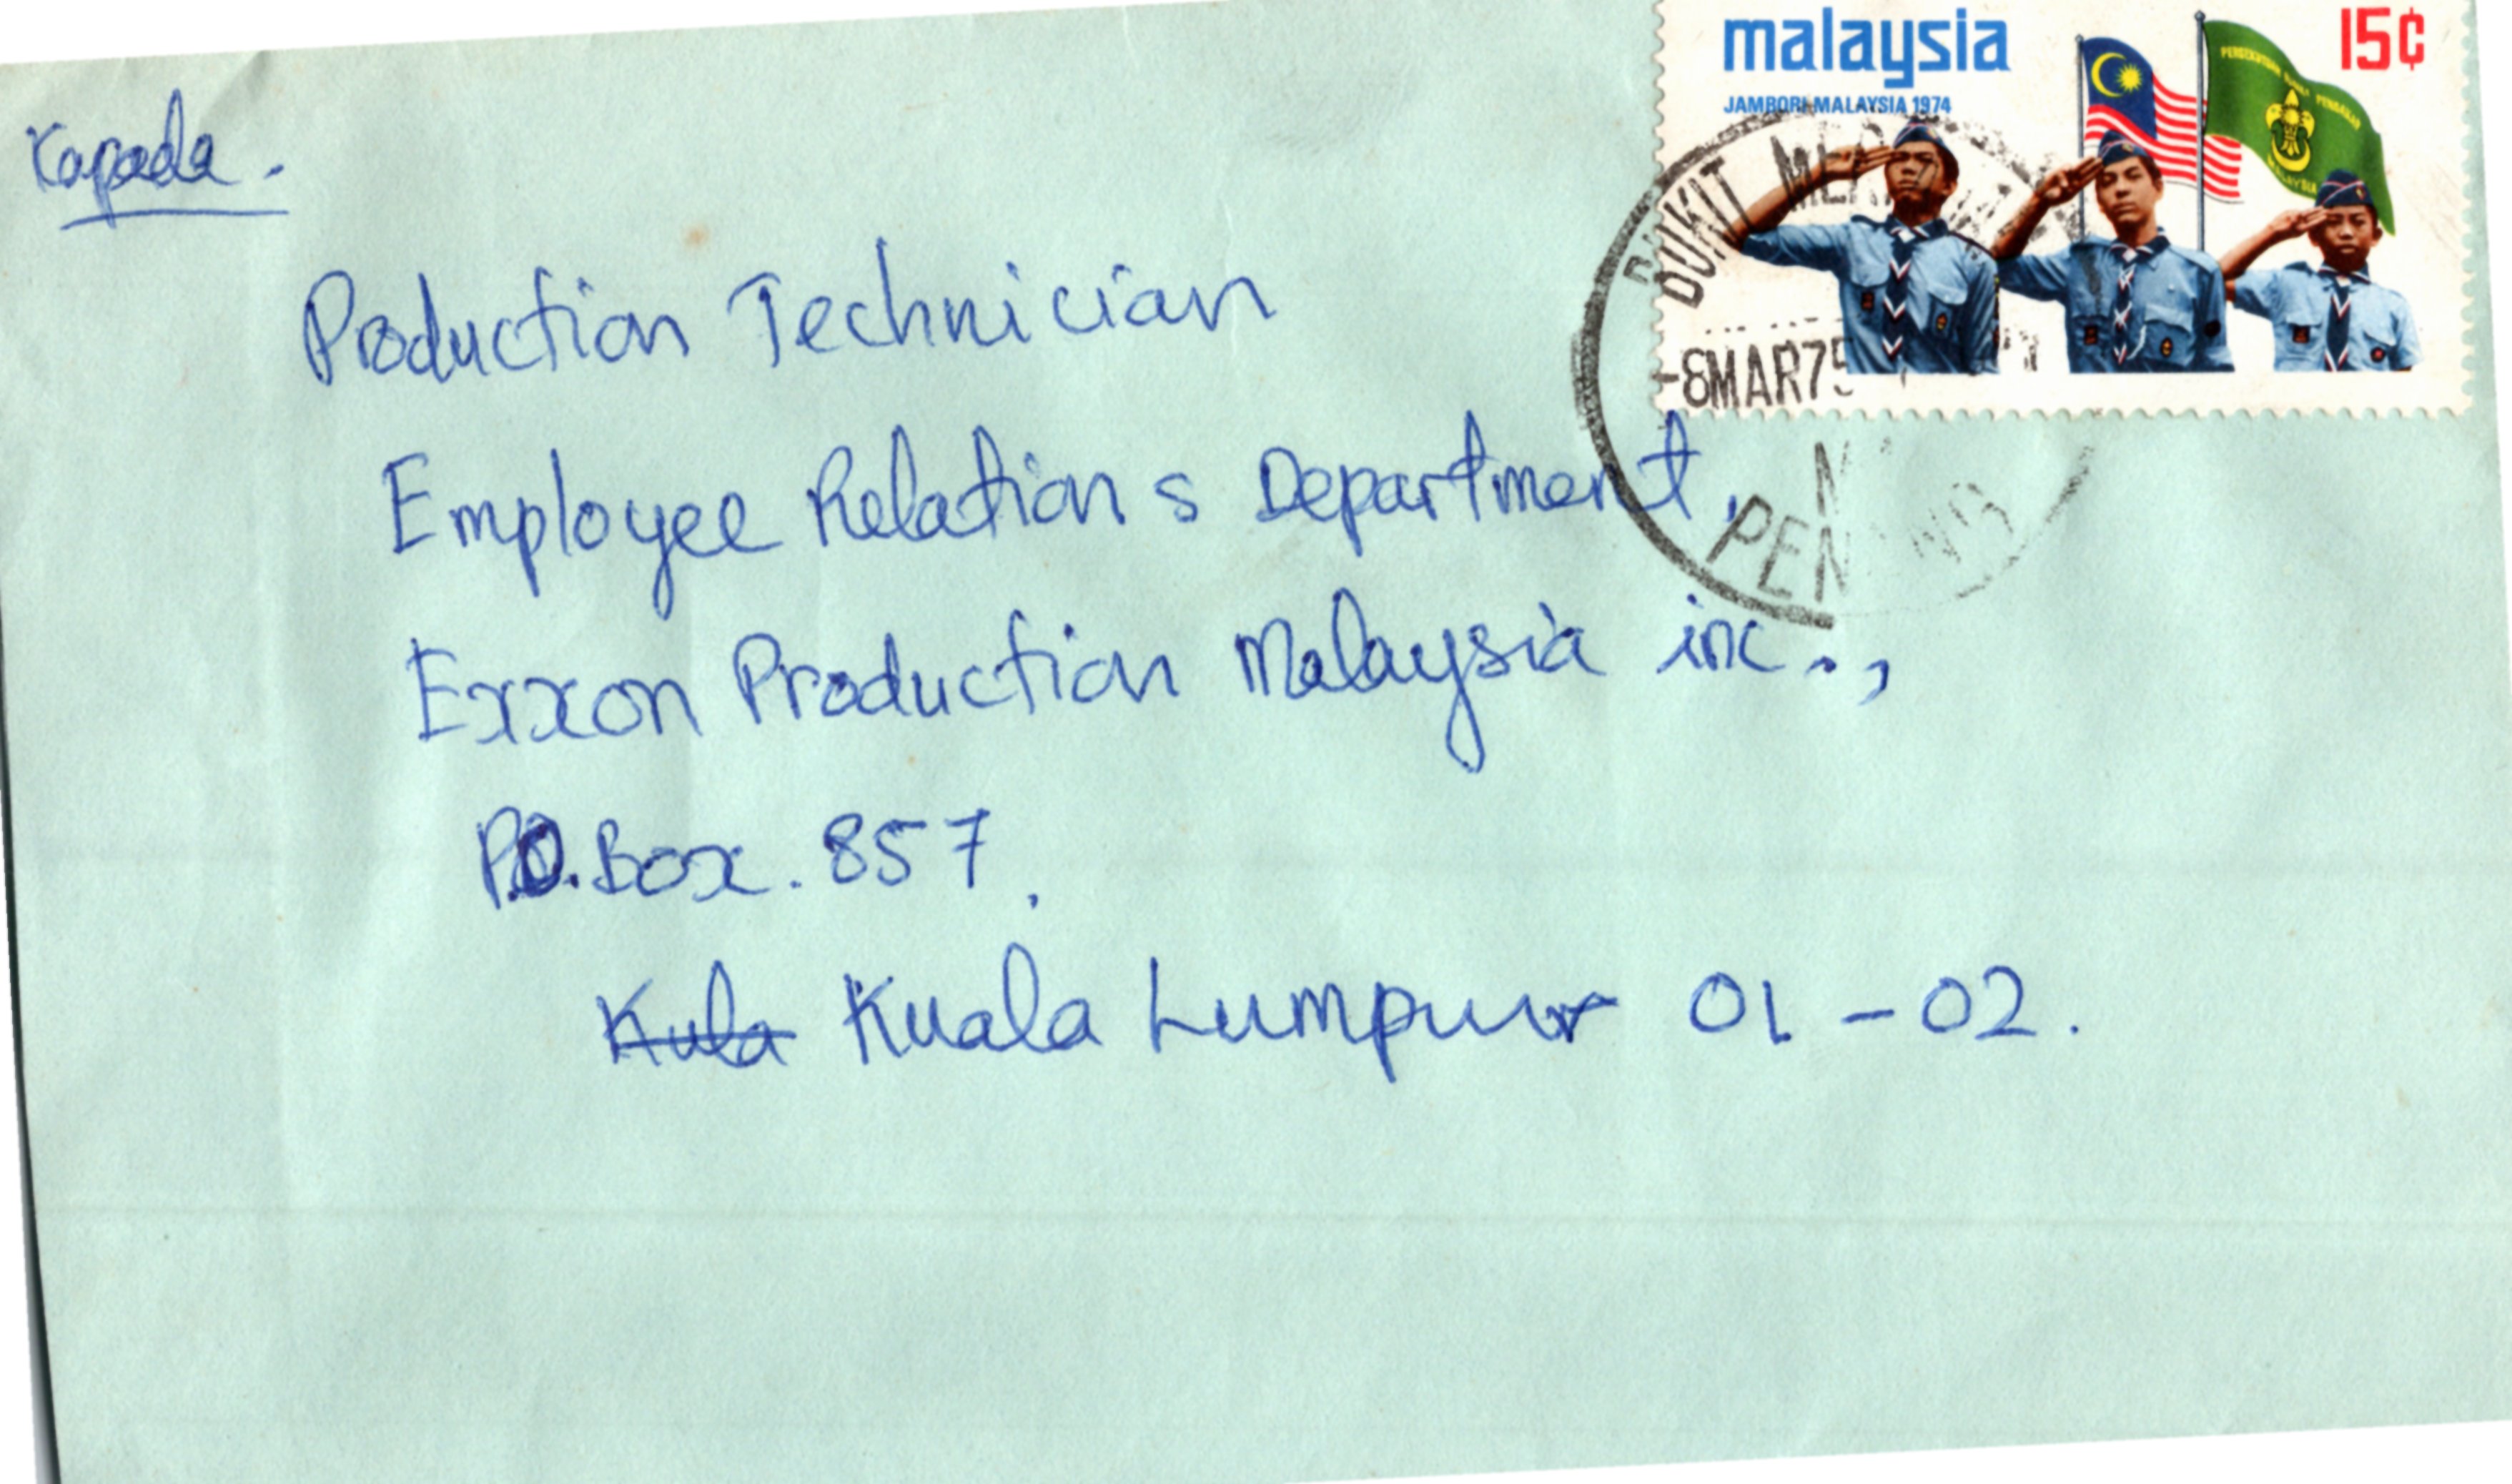 malaysia 15¢
JAMBORI MALAYSIA 1974
BUKIT
-8MAR75
Kapada.
Production Technician
Employee Relations Department,
Exxon Production Malaysia inc.,
P.O. Box. 857,
Kula Kuala Lumpur 01-02.